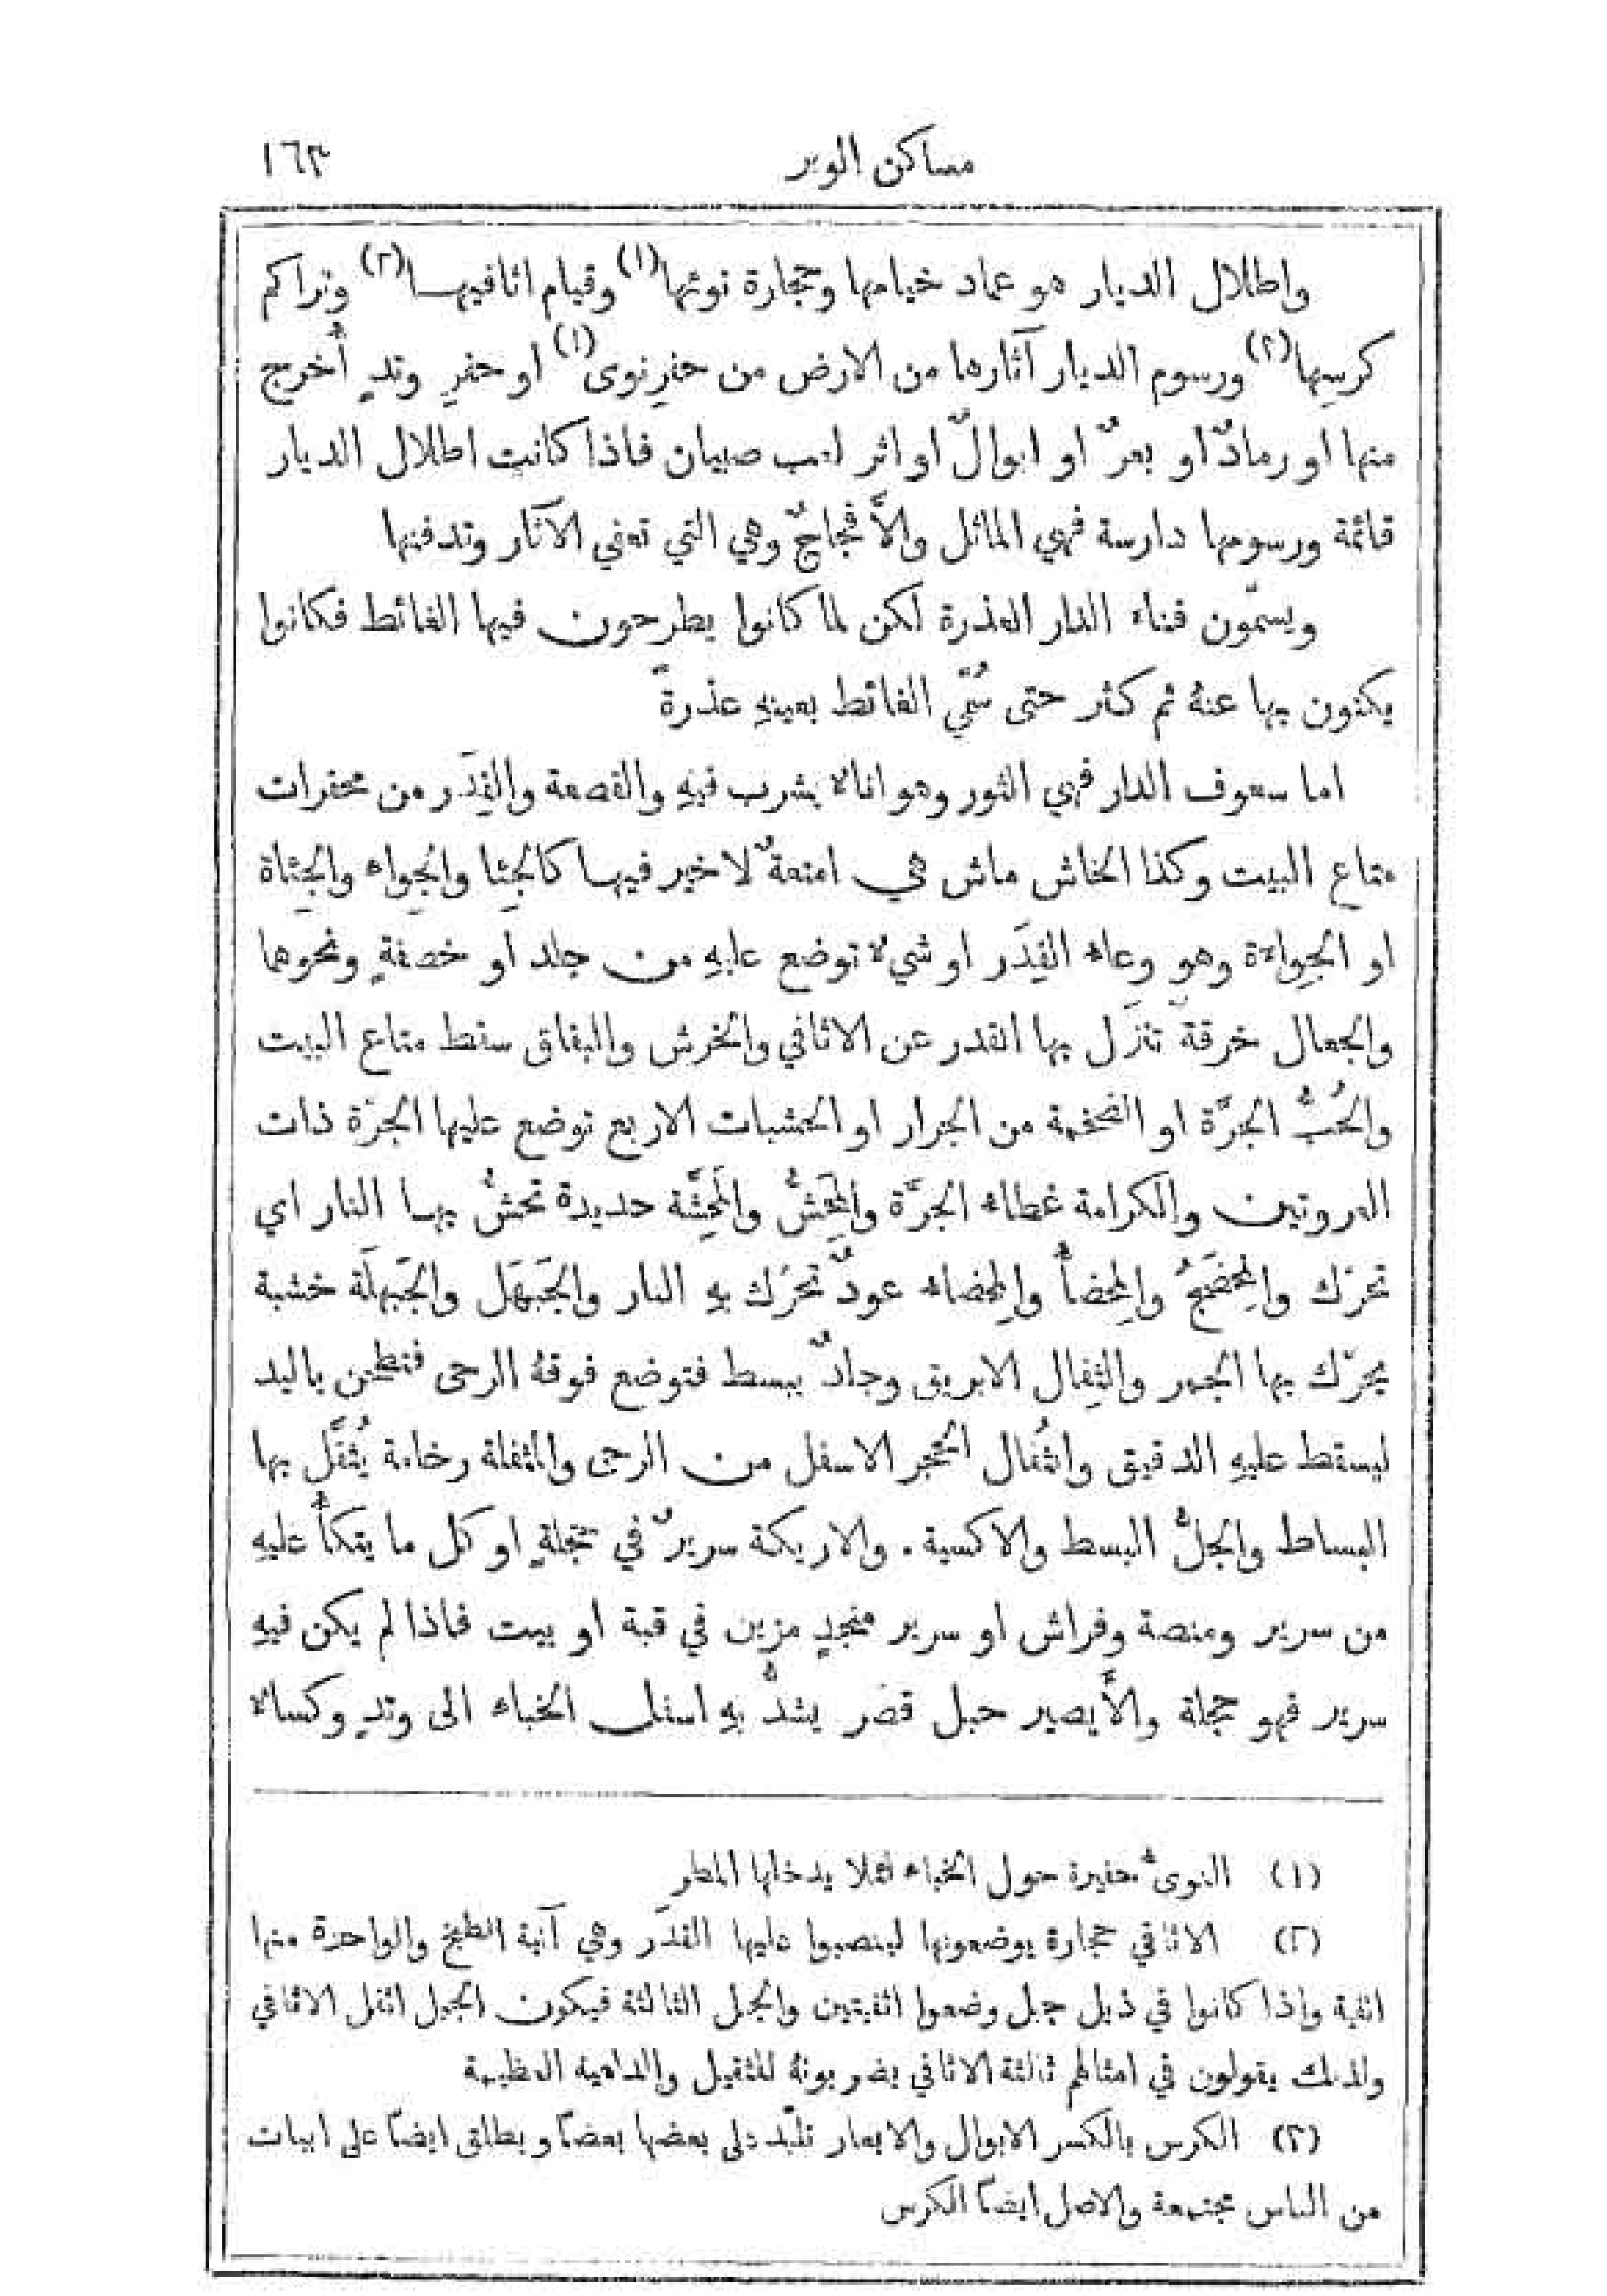 مساكن الوبر ١٦٣
واطلال الديار هو عماد خيامها وحجارة نوئها(١) وقيام اثافيها(٢) وتراكم
كرسِها(٣) ورسوم الديار آثارها من الارض من حفرِ نوى(١) او حفرِ وتدٍ أُخرج
منها او رمادٌ او بعرٌ او ابوالٌ او اثر لعب صبيان فاذا كانت اطلال الديار
قائمة ورسومها دارسة فهي الماثل والأَفجاجُ وهي التي تعفي الآثار وتدفنها
ويسمّون فناء الدار العذرة لكن لما كانوا يطرحون فيها الغائط فكانوا
يكنون بها عنهُ ثم كثر حتى سُمّي الغائط بعينهِ عذرةً
اما سعوف الدار فهي الثور وهو اناءٌ يشرب فيهِ والقصعة والقِدَر من محقرات
متاع البيت وكذا الخاش ماش هي امتعةٌ لا خير فيها كالجِئا والجِواء والجِئاة
او الجِواءة وهو وعاء القِدَر او شيءٌ توضع عليهِ من جلد او خصفةٍ ونحوهما
والجعال خرقةٌ تنزَل بها القدر عن الاثافي والخرش والبقاق سقط متاع البيت
والحُبُّ الجرَّة او الضخمة من الجرار او الخشبات الاربع توضع عليها الجرَّة ذات
العروتين والكرامة غطاء الجرَّة والمِحَشُّ والمِحَشَّة حديدة تحشُّ بها النار اي
تحرَّك والمِحضَجُ والمِحضأُ والمِحضاء عودٌ تحرَّك بهِ النار والجَيهَل والجَيهلَة خشبة
يحرَّك بها الجمر والثِفال الابريق وجلدٌ يبسط فتوضع فوقهُ الرحى فتطحن باليد
ليسقط عليهِ الدقيق والثُفال الحجر الاسفل من الرحى والمثقلة رخامة يُثقَّل بها
البساط والجلُّ البسط والاكسية . والاريكة سريرٌ في حجلةٍ او كل ما يتكأُ عليهِ
من سرير ومنصة وفراش او سرير منجدٍ مزين في قبة او بيت فاذا لم يكن فيهِ
سرير فهو حجلة والأَيصير حبل قصر يشدُّ بهِ اسفل الخباء الى وتدٍ وكساءٌ
(١) النوىُ حفيرة حول الخباء لئلا يدخلها المطر
(٢) الاثافي حجارة يوضعونها لينصبوا عليها القدَر وهي آنية الطبخ والواحدة منها
اثفية واذا كانوا في ذيل جبل وضعوا اثفيتين والجبل الثالثة فيكون الجبل اثقل الاثافي
ولذلك يقولون في امثالهم ثالثة الاثافي يضربونهُ للثقيل والداهية العظيمة
(٣) الكرس بالكسر الابوال والابعار تلبّد على بعضها بعضاً ويطلق ايضاً على ابيات
من الناس مجتمعة والاصل ايضاً الكرس